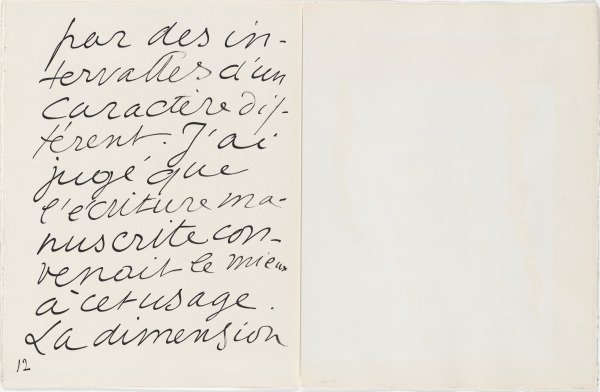 par des in-
tervalles d'un
caractère dif-
férent. J'ai
jugé que
l'écriture ma-
nuscrite con-
venait le mieux
à cet usage.
La dimension
12